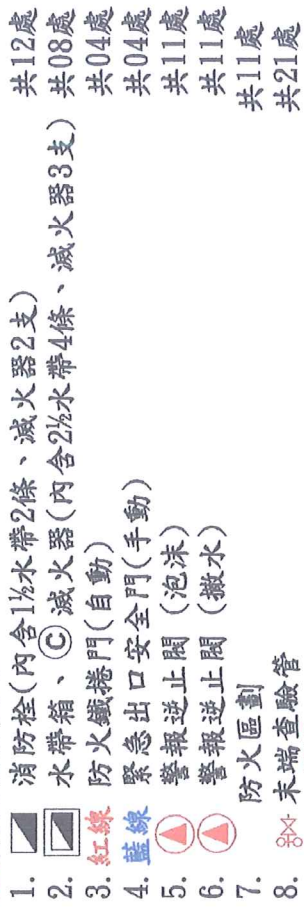 1. 消防栓(內含1½水帶2條、滅火器2支) 共12處
2. 水帶箱、Ⓒ滅火器(內含2½水帶4條、滅火器3支) 共08處
3. 紅線 防火鐵捲門(自動) 共04處
4. 藍線 緊急出口安全門(手動) 共04處
5. 警報逆止閥 (泡沫) 共11處
6. 警報逆止閥 (撒水) 共11處
7. 防火區劃 共11處
8. 末端查驗管 共21處